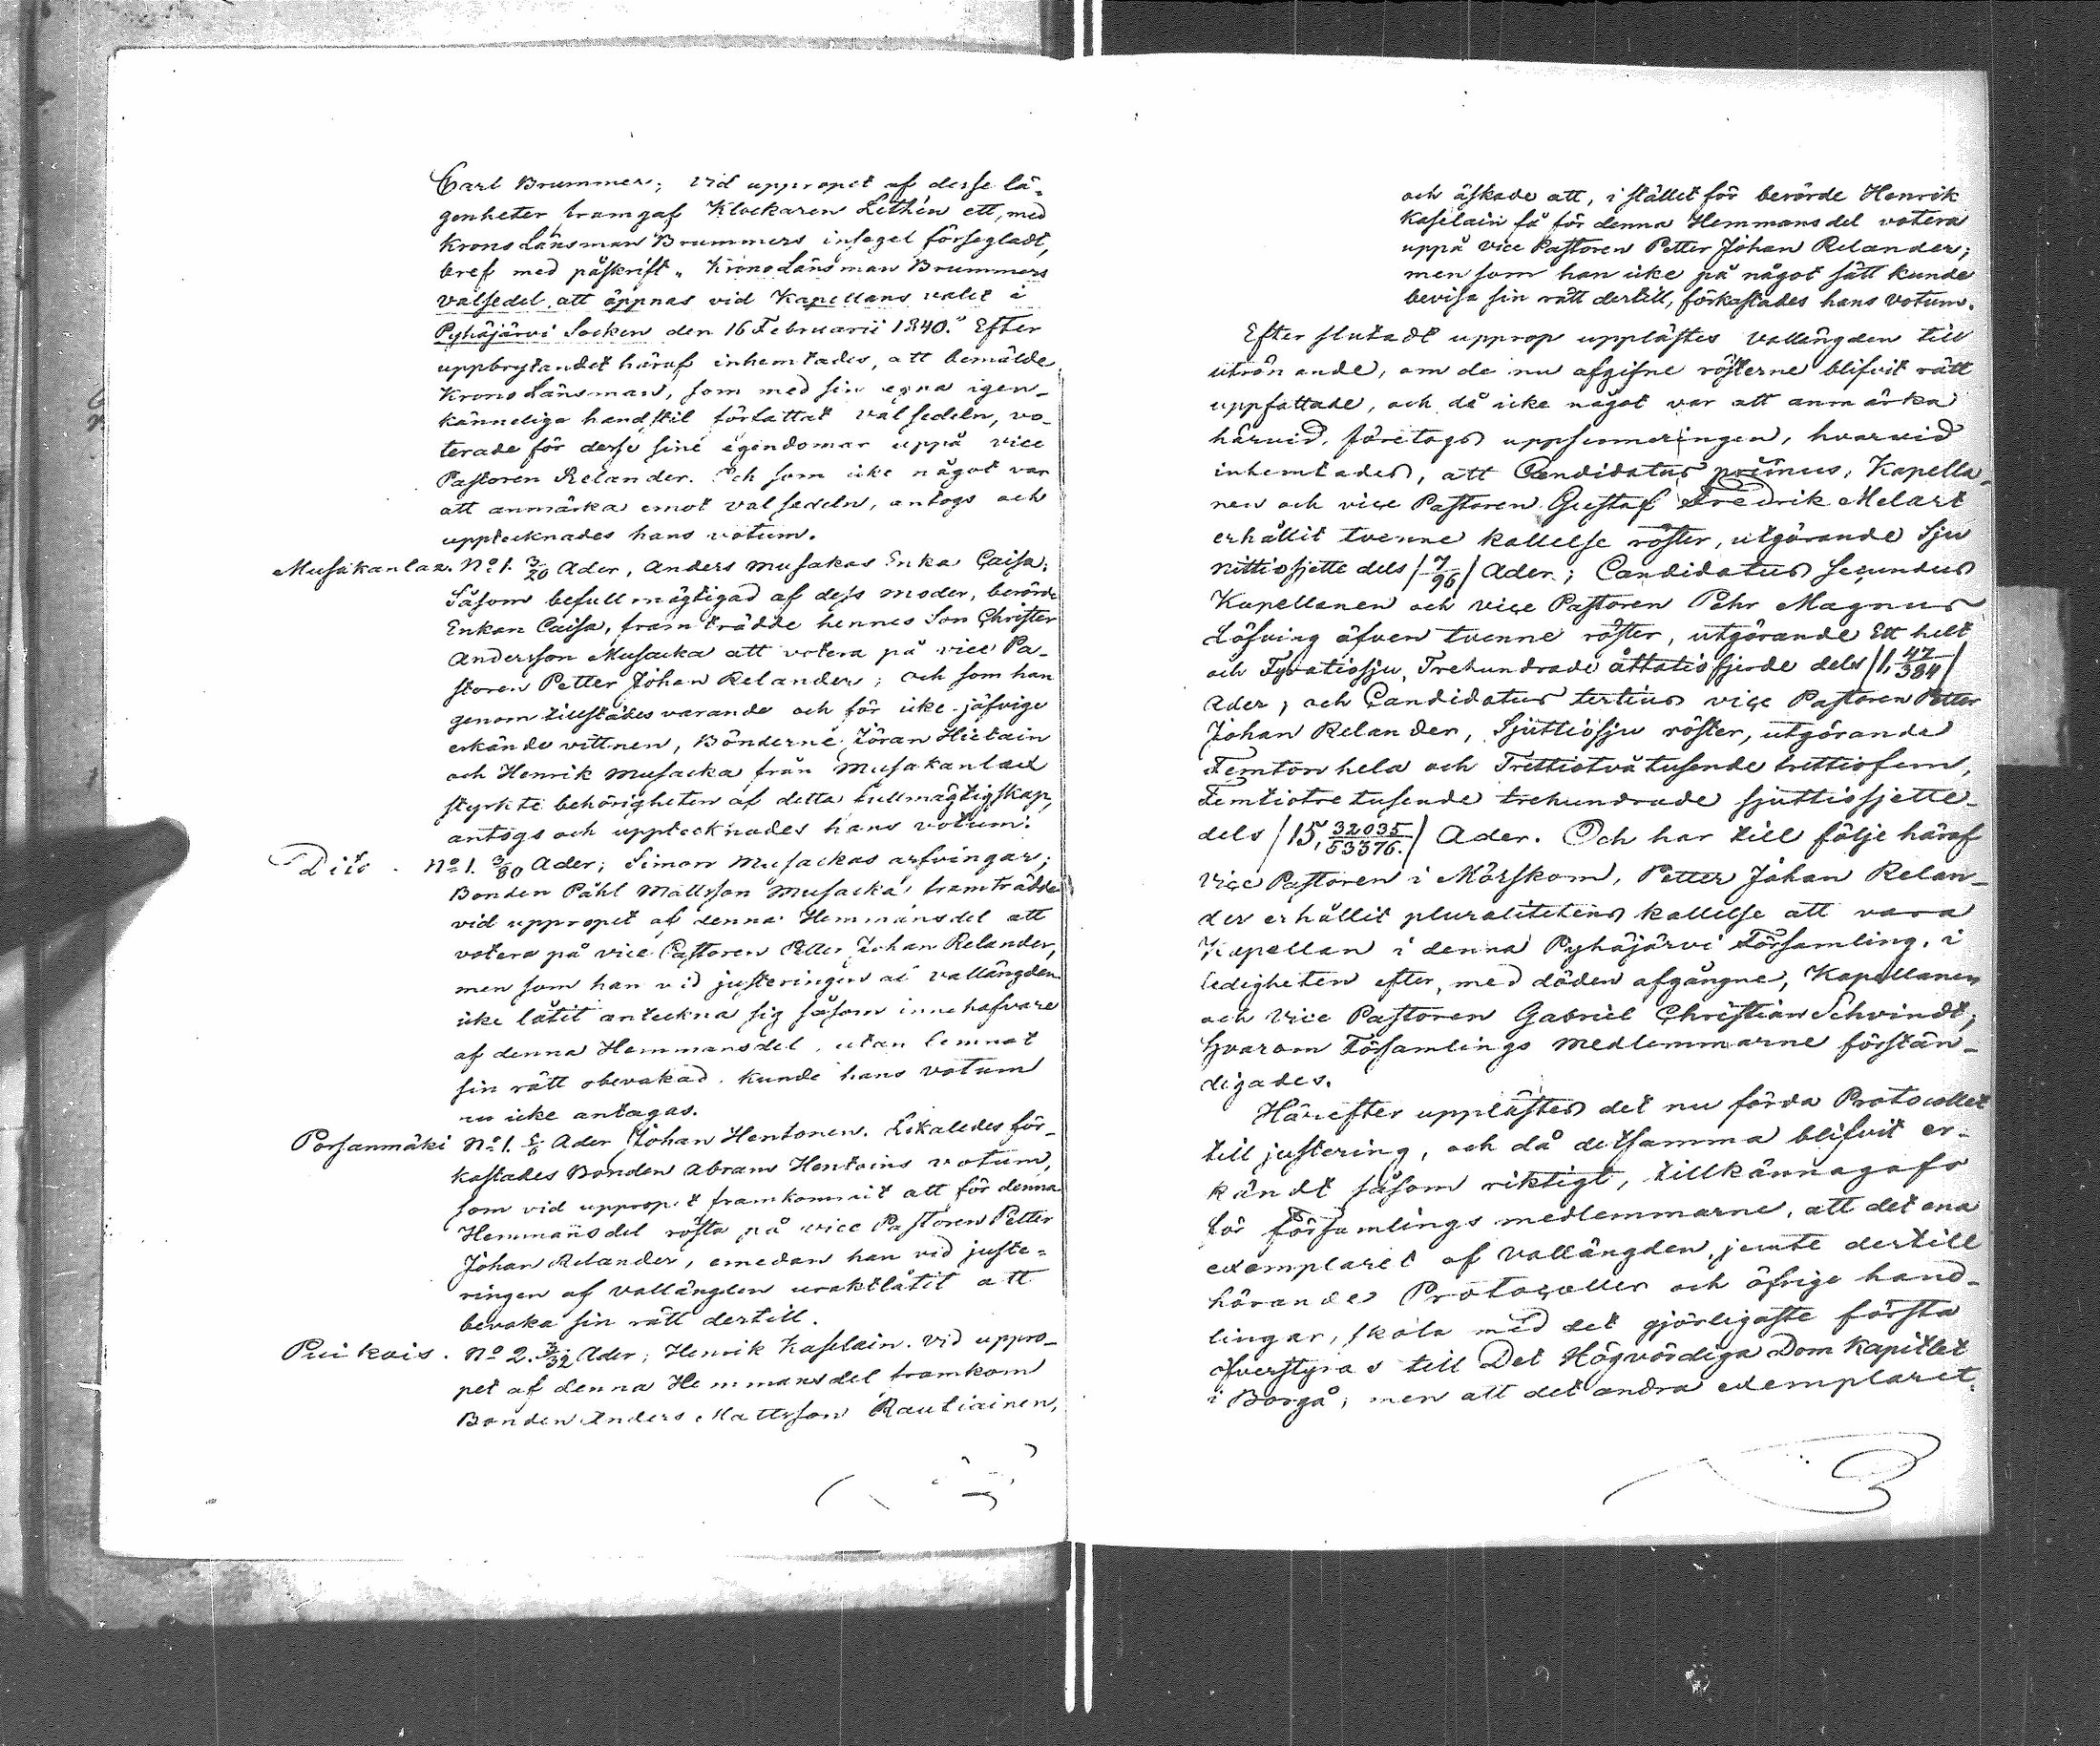 Carl Brummer; vid uppropet af desse lä-
genheter framgaf Klockaren Lithén ett, med
Krono Länsman Brummers insegel försegladt,
bref med påskrift „Krono Länsman Brummers
valsedel att öppnas vid Kapellans valet i
Pyhäjärvi Socken den 16 Februarii 1840." Efter
uppbrytandet häraf inhemtades, att bemälde
Krono Länsman, som med sin egna igen-
känneliga handstil författat valsedeln, vo-
terade för desse sine egendomar uppå vice
Pastoren Relander. Och som icke något var
att anmärka emot valsedeln, antogs och
upptecknades hans votum.
Musakanlax. No 1. 3/20 Ader, Anders Musakas Enka Caisa;
Såsom befullmägtigad af dess moder, berörde
Enkan Caisa, framträdde hennes Son Christer
Andersson Musacka att votera på vice Pa-
storen Petter Johan Relander; och som han
genom tillstädes varande och för icke jäfvige
erkände vittnen, Bönderne Jöran Hietain
och Henrik Musacka från Musakanlax
styrkte behörigheten af detta fullmägtigskap,
antogs och upptecknades hans votum.
Dito. No 1. 3/80 Ader; Simon Musackas arfvingar;
Bonden Påhl Mattsson Musacka, framträdde
vid uppropet af denna Hemmansdel att
votera på vice Pastoren Petter Johan Relander,
men som han vid justeringen af vallängden
icke låtit anteckna sig såsom innehafvare
af denna Hemmansdel, utan lemnat
sin rätt obevakad, kunde hans votum
nu icke antagas.
Porsanmäki No 1. Ader Johan Hentonen. Likaledes för-
kastades Bonden Abram Hentoins votum,
som vid uppropet framkommit att för denna
Hemmansdel rösta på vice Pastoren Petter
Johan Relander, emedan han vid juste-
ringen af vallängden uraktlåtit att
bevaka sin rätt dertill.
Puikois. No 2. 3/32 Ader; Henrik Kaselain. Vid uppro-
pet af denna Hemmansdel framkom
Bonden Anders Mattsson Rautiainen,
och äskade att, i stället för berörde Henrik
Kaselain få för denna Hemmansdel votera
uppå vice Pastoren Petter Johan Relander;
men som han icke på något sätt kunde
bevisa sin rätt dertill, förkastades hans votum.
Efter slutadt upprop upplästes vallängden till
utrönande, om de nu afgifne rösterne blifvit rätt
uppfattade, och då icke något var att anmärka
härvid, företogs uppsummeringen, hvarvid
inhemtades, att Candidatus primus, Kapella-
nen och vice Pastoren Gustaf Fredrik Melart
erhållit tvenne kallelse röster, utgörande Sju
nittiosjette dels /7/96/ Ader; Candidatus secundus
Kapellanen och vice Pastoren Pehr Magnus
Lösving äfven tvenne röster, utgörande Ett helt
och Fyratiosju, Trehundrade åttatiofjerde dels /1, 47/384/
Ader; och Candidatus tertius vice Pastoren Petter
Johan Relander, Sjuttiosju röster, utgörande
Femton hela och Trettiotvå tusende trettiofem,
Femtiotre tusende trehundrade sjuttiosjette-
dels /15, 32035/53376./ Ader. Och har till följe häraf
vice Pastoren i Mörskom, Petter Johan Relan-
der erhållit pluralitetens kallelse att vara
Kapellan i denna Pyhäjärvi Församling, i
ledigheten efter, med döden afgångne, Kapellanen
och Vice Pastoren Gabriel Christian Schvindt;
hvarom Församlings medlemmarne förstän-
digades.
Härefter upplästes det nu förda Protocollet
till justering, och då detsamma blifvit er-
kändt såsom riktigt, tillkännagafs
för församlings medlemmarne, att det ena
exemplaret af vallängden, jemte dertill
hörande Protocoller och öfrige hand-
lingar, skola med det gjörligaste första
öfverstyras till Det Högvördiga Dom Kapitlet
i Borgå; men att det andra exemplaret